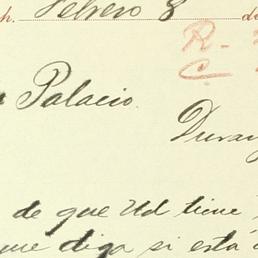 h. Febrero 8 d
R-
C.
Palacio.
Duran
de que Ud tiene
me diga si está